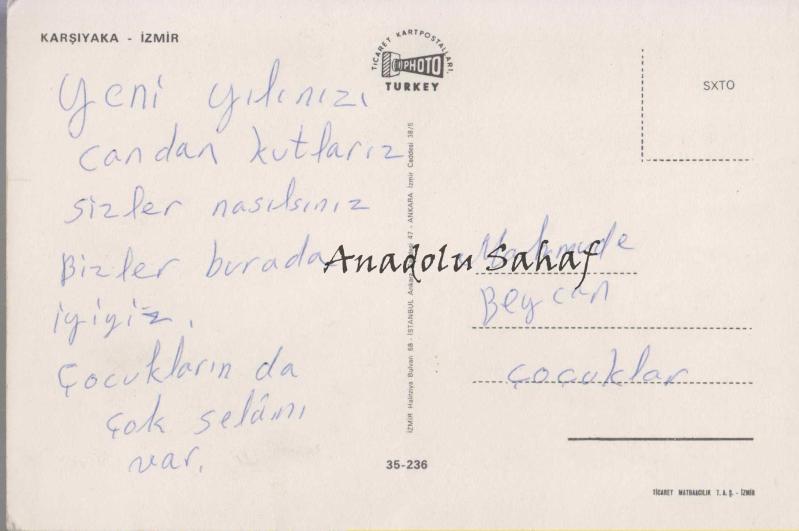 KARŞIYAKA - İZMİR
Yeni yılınızı
candan kutlarız
sizler nasılsınız
Bizler burada
iyiyiz.
Çocukların da
çok selâmı
var.
TİCARET KARTPOSTALLARI,
PHOTO
TURKEY
İZMİR Halitziya Bulvarı 68 - İSTANBUL Ankara 47 - ANKARA İzmir Caddesi 38/5
35-236
SXTO
Anadolu Sahaf
Mahmude
Beycan
çocuklar
TİCARET MATBAACILIK T. A. Ş. - İZMİR